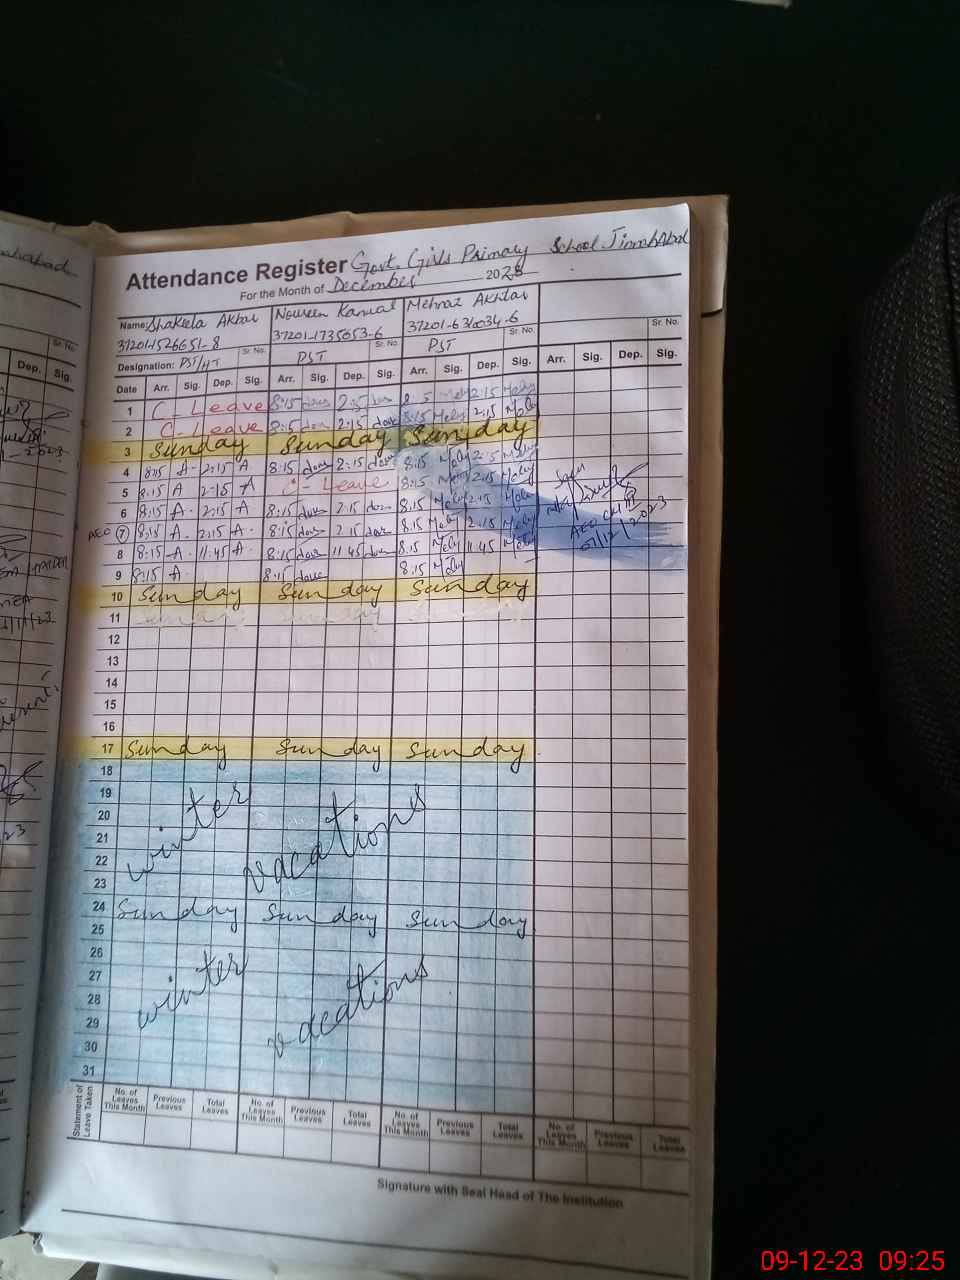 Attendance Register Govt. Girls Primary School JinnahAbad
For the Month of December 2023
Name: Shakeela Akbar Noureen Kanwal Mehnaz Akhtar
37201-1526651-8 37201-1735053-6 37201-630034-6
Sr. No. Sr. No. Sr. No. Sr. No.
Designation: PST/HT PST PST
Date Arr. Sig. Dep. Sig. Arr. Sig. Dep. Sig. Arr. Sig. Dep. Sig. Arr. Sig. Dep. Sig.
1 C - Leave 8:15 2:15 2:15
2 C - Leave 8:15 2:15 8:15 2:15
3 Sunday Sunday Sunday
4 8:15 A 2:15 A 8:15 2:15 8:15 2:15
5 8:15 A 2:15 A C - Leave 8:15 2:15
6 8:15 A 2:15 A 8:15 2:15 8:15 2:15
AEO 7 8:15 A 2:15 A 8:15 2:15 8:15 2:15
8 8:15 A 11:45 A 8:15 11:45 8:15 11:45
9 8:15 A 8:15 8:15
10 Sunday Sunday Sunday
11
12
13
14
15
16
17 Sunday Sunday Sunday
18
19
20
21 winter vacations
22
23
24 Sunday Sunday Sunday
25
26
27
28 winter vacations
29
30
31
Statement of Leave Taken
No. of Leaves This Month Previous Leaves Total Leaves No. of Leaves This Month Previous Leaves Total Leaves No. of Leaves This Month Previous Leaves Total Leaves No. of Leaves This Month Previous Leaves Total Leaves
Signature with Seal Head of The Institution
Dep. Sig.
09-12-23 09:25